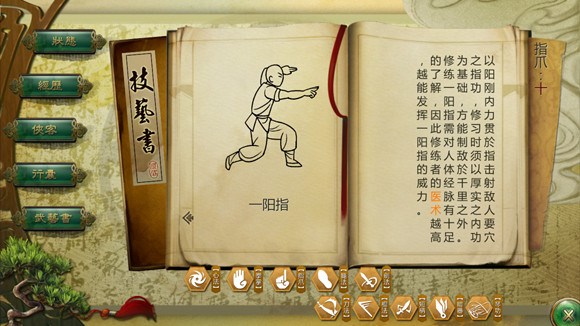 狀態
經歷
俠客
行囊
技藝書
技藝書
一阳指
指爪：十
以阳刚内力贯於指击射敌人要穴
之指功，修习时须以厚实之内功
为基础，方能制敌於千里之外。
修练一阳指需对人体经脉有十足
的了解，因此修练者的医术越高
，越能发挥一阳指的威力。